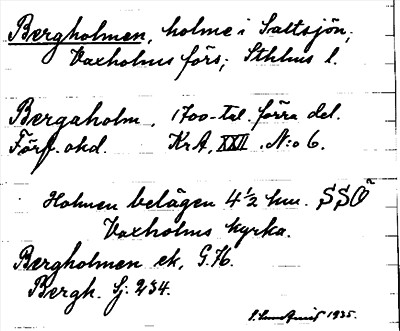 Bergholmen, holme i Saltsjön,
Vaxholms förs; Sthlms l.
Bergaholm, 1700-tal. förra del.
Förf. okd. KrA, XXII, N:o 6.
Holmen belägen 4½ km. SSO
Vaxholms kyrka.
Bergholmen ek, G.H.
Bergh. Gj: 234.
1935.